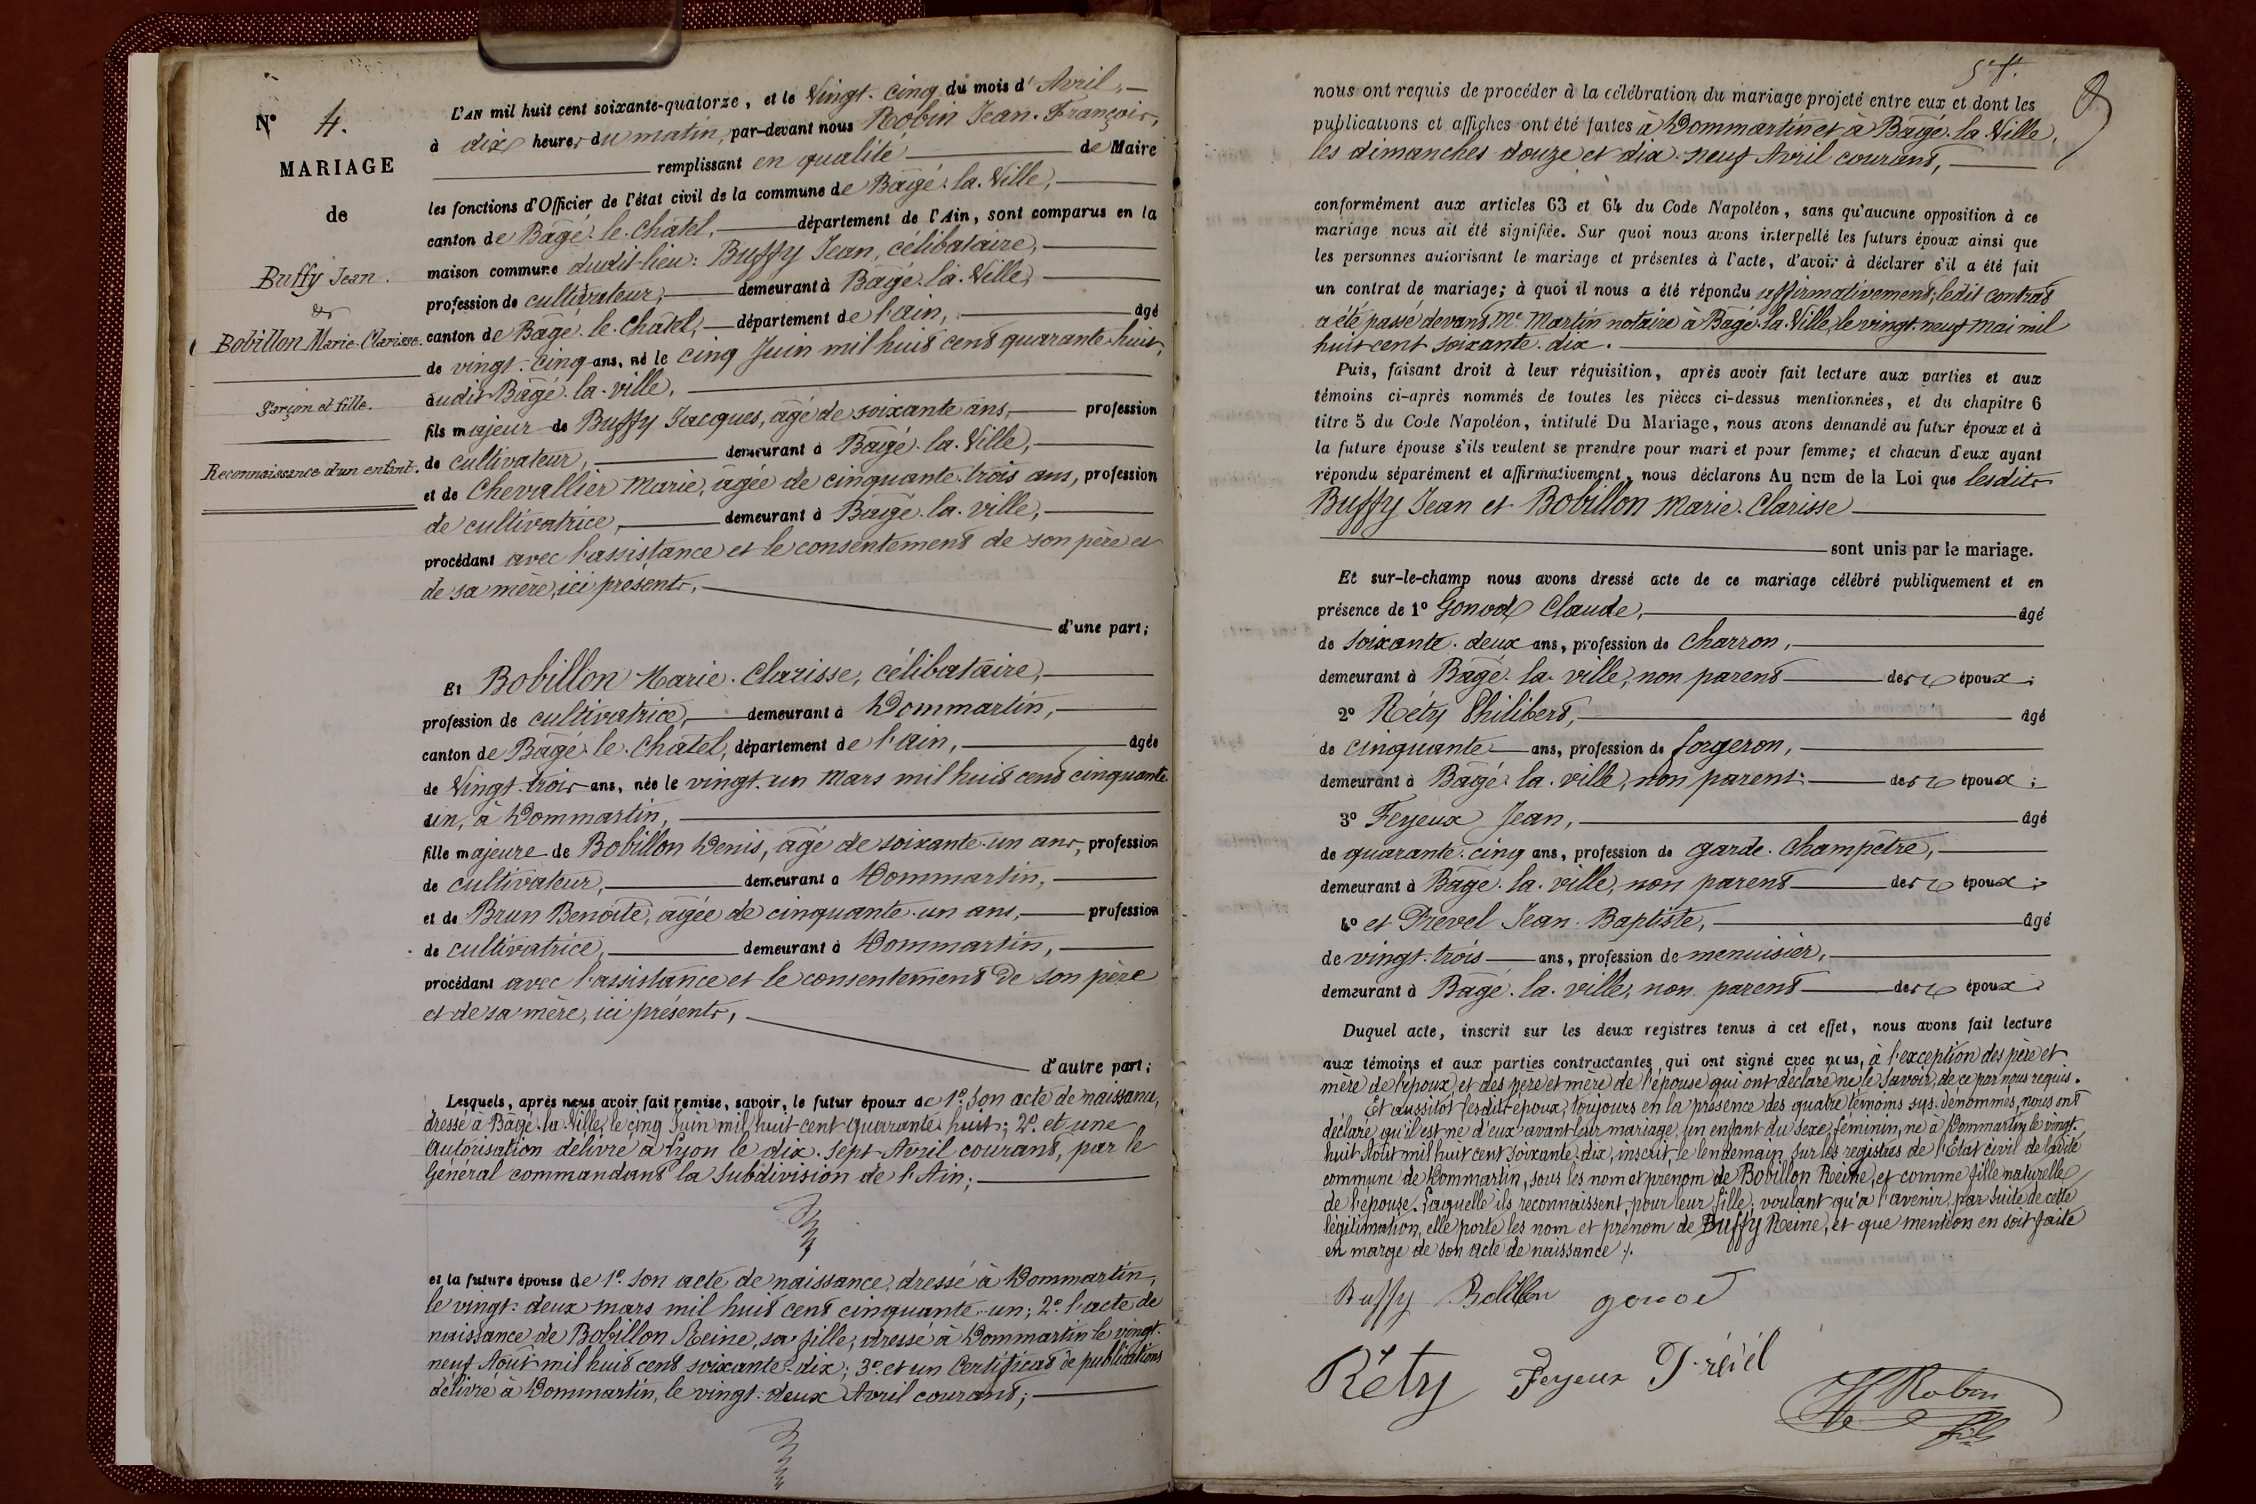 N° 4.
MARIAGE
de
Buffy Jean.
&
Bobillon Marie-Clarisse.
garçon et fille.
Reconnaissance d'un enfant.
L'AN mil huit cent soixante-quatorze, et le Vingt-cinq du mois d'Avril,
à dix heures du matin, par-devant nous Robin Jean-François,
remplissant en qualité de Maire
les fonctions d'Officier de l'état civil de la commune de Bâgé-la-Ville,
canton de Bâgé-le-Châtel, département de l'Ain, sont comparus en la
maison commune dudit lieu: Buffy Jean, célibataire,
profession de cultivateur, demeurant à Bâgé-la-Ville,
canton de Bâgé-le-Châtel, département de l'ain, âgé
de vingt-cinq ans, né le cinq Juin mil huit cent quarante-huit,
audit Bâgé-la-ville,
fils majeur de Buffy Jacques, âgé de soixante ans, profession
de cultivateur, demeurant à Bâgé-la-Ville,
et de Chevallier Marie, âgée de cinquante-trois ans, profession
de cultivatrice, demeurant à Bâgé-la-ville,
procédant avec l'assistance et le consentement de son père et
de sa mère, ici présents,
d'une part;
Et Bobillon Marie-Clarisse, célibataire,
profession de cultivatrice, demeurant à Dommartin,
canton de Bâgé-le-Châtel, département de l'ain, âgée
de Vingt-trois ans, née le vingt-un Mars mil huit cent cinquante-
un, à Dommartin,
fille majeure de Bobillon Denis, âgé de soixante-un ans, profession
de cultivateur, demeurant à Dommartin,
et de Brun Benoîte, âgée de cinquante-un ans, profession
de cultivatrice, demeurant à Dommartin,
procédant avec l'assistance et le consentement de son père
et de sa mère, ici présents,
d'autre part;
Lesquels, après nous avoir fait remise, savoir, le futur époux de 1° Son acte de naissance,
dressé à Bâgé-la-Ville, le cinq Juin mil huit cent quarante-huit; 2° et une
Autorisation délivré à Lyon le dix-sept Avril courant, par le
Général commandant la Subdivision de l'Ain;
et la future épouse de 1° Son acte de naissance, dressé à Dommartin,
le vingt-deux mars mil huit cent cinquante-un; 2° l'acte de
naissance de Bobillon Reine, sa fille, dressé à Dommartin le vingt-
neuf Août mil huit cent soixante-dix; 3° et un Certificat de publications
délivré à Dommartin, le vingt-deux Avril courant;
nous ont requis de procéder à la célébration du mariage projeté entre eux et dont les
publications et affiches ont été faites à Dommartin et à Bâgé-la-Ville,
les dimanches douze et dix-neuf Avril courant,
conformément aux articles 63 et 64 du Code Napoléon, sans qu'aucune opposition à ce
mariage nous ait été signifiée. Sur quoi nous avons interpellé les futurs époux ainsi que
les personnes autorisant le mariage et présentes à l'acte, d'avoir à déclarer s'il a été fait
un contrat de mariage; à quoi il nous a été répondu affirmativement; ledit contrat
a été passé devant Me Martin notaire à Bâgé-la-Ville, le vingt-neuf Mai mil
huit cent soixante-dix.
Puis, faisant droit à leur réquisition, après avoir fait lecture aux parties et aux
témoins ci-après nommés de toutes les pièces ci-dessus mentionnées, et du chapitre 6
titre 5 du Code Napoléon, intitulé Du Mariage, nous avons demandé au futur époux et à
la future épouse s'ils veulent se prendre pour mari et pour femme; et chacun d'eux ayant
répondu séparément et affirmativement, nous déclarons Au nom de la Loi que lesdits
Buffy Jean et Bobillon Marie-Clarisse
sont unis par le mariage.
Et sur-le-champ nous avons dressé acte de ce mariage célébré publiquement et en
présence de 1° Gonod Claude, âgé
de soixante-deux ans, profession de charron,
demeurant à Bâgé-la-ville, non parent des époux;
2° Réty Philibert, âgé
de cinquante ans, profession de forgeron,
demeurant à Bâgé-la-ville, non parent des époux;
3° Feyeux Jean, âgé
de quarante-cinq ans, profession de garde-Champêtre,
demeurant à Bâgé-la-ville, non parent des époux;
4° et Prevel Jean-Baptiste, âgé
de vingt-trois ans, profession de menuisier,
demeurant à Bâgé-la-ville, non parent des époux
Duquel acte, inscrit sur les deux registres tenus à cet effet, nous avons fait lecture
aux témoins et aux parties contractantes qui ont signé avec nous, à l'exception des père et
mère de l'époux et des père et mère de l'épouse qui ont déclaré ne le savoir, de ce par nous requis.
Et aussitôt lesdits époux, toujours en la présence des quatre témoins sus-dénommés, nous ont
déclaré qu'il est né d'eux avant leur mariage, un enfant du sexe féminin, né à Dommartin le vingt-
huit Août mil huit cent soixante-dix, inscrit le lendemain sur les registres de l'Etat civil de ladite
commune de Dommartin, sous les nom et prénom de Bobillon Reine, et comme fille naturelle
de l'épouse. Laquelle ils reconnaissent pour leur fille, voulant qu'à l'avenir, par suite de cette
légitimation, elle porte les nom et prénom de Buffy Reine, et que mention en soit faite
en marge de son acte de naissance ./.
Buffy Bobillon gonod
Réty Feyeux Prével
Robin
fils